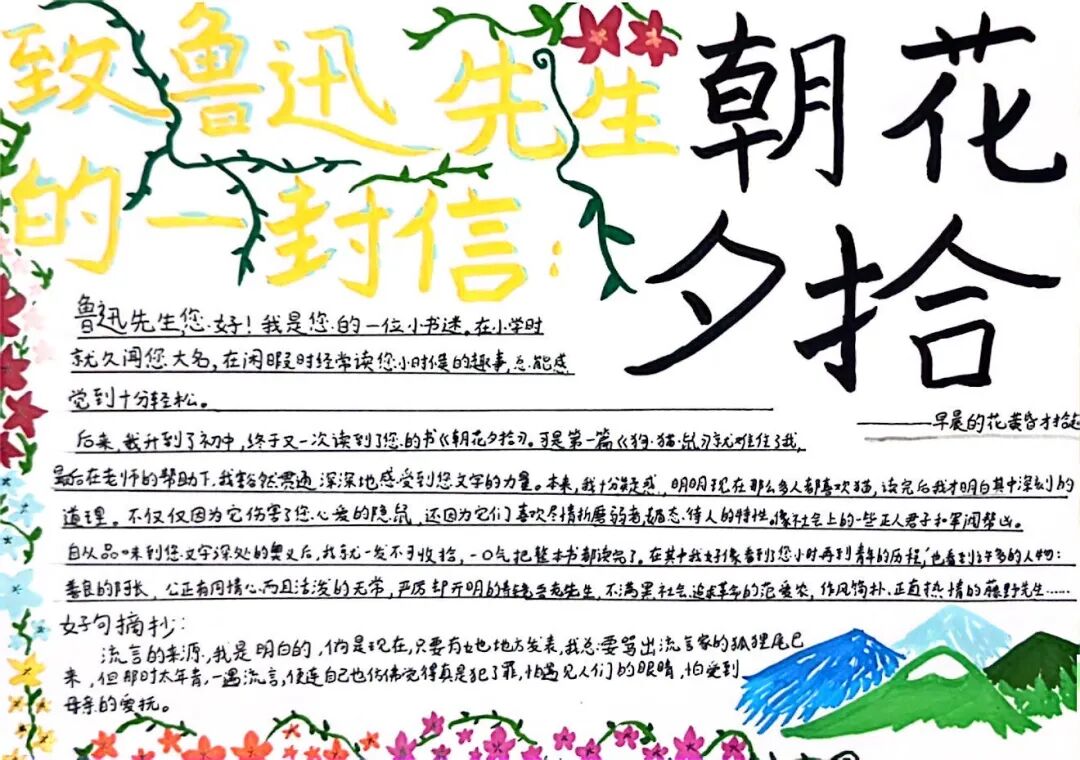 致鲁迅先生
的一封信:
朝花
夕拾
——早晨的花黄昏才拾起
鲁迅先生您好！我是您的一位小书迷,在小学时
就久闻您大名,在闲暇时经常读您小时候的趣事,总能感
觉到十分轻松。
后来,我升到了初中,终于又一次读到了您的书《朝花夕拾》。可是第一篇《狗·猫·鼠》就难住了我,
最后在老师的帮助下,我豁然贯通,深深地感受到您文字的力量。本来,我十分疑惑,明明现在那么多人都喜欢猫,读完后我才明白其中深刻的
道理。不仅仅因为它伤害了您心爱的隐鼠,还因为它们喜欢尽情折磨弱者,媚态待人的特性。像社会上的一些正人君子和军阀帮凶。
自从品味到您文字深处的奥义后,我就一发不可收拾,一口气把整本书都读完了。在其中我好像看到了您小时再到青年的历程,也看到许多的人物:
善良的阿长,公正有同情心而且活泼的无常,严厉却开明的寿镜吾老先生,不满黑社会追求革命的范爱农,作风简朴、正直热情的藤野先生……
好句摘抄:
流言的来源,我是明白的,倘是现在,只要有地方发表,我总要骂出流言家的狐狸尾巴
来,但那时太年青,一遇流言,便连自己也仿佛觉得真是犯了罪,怕遇见人们的眼睛,怕受到
母亲的爱抚。